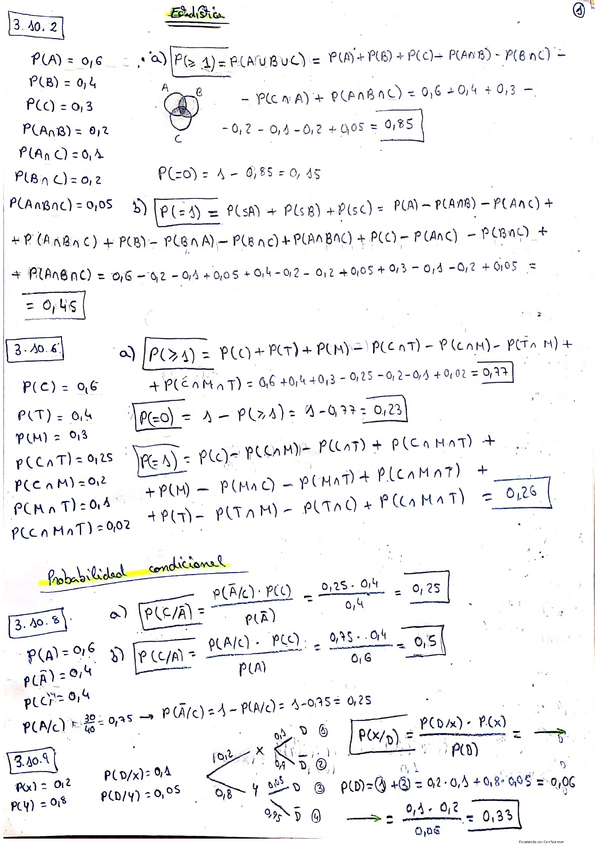 Estadística
1
3.10.2
P(A) = 0,6
P(B) = 0,4
P(C) = 0,3
P(A∩B) = 0,2
P(A∩C) = 0,1
P(B∩C) = 0,2
P(A∩B∩C) = 0,05
a) P(≥ 1) = P(A∪B∪C) = P(A) + P(B) + P(C) - P(A∩B) - P(B∩C) -
A B C
- P(C∩A) + P(A∩B∩C) = 0,6 + 0,4 + 0,3 -
- 0,2 - 0,1 - 0,2 + 0,05 = 0,85
P(=0) = 1 - 0,85 = 0,15
b) P(=1) = P(sA) + P(sB) + P(sC) = P(A) - P(A∩B) - P(A∩C) +
+ P(A∩B∩C) + P(B) - P(B∩A) - P(B∩C) + P(A∩B∩C) + P(C) - P(A∩C) - P(B∩C) +
+ P(A∩B∩C) = 0,6 - 0,2 - 0,1 + 0,05 + 0,4 - 0,2 - 0,2 + 0,05 + 0,3 - 0,1 - 0,2 + 0,05 =
= 0,45
3.10.6
P(C) = 0,6
P(T) = 0,4
P(M) = 0,3
P(C∩T) = 0,25
P(C∩M) = 0,2
P(M∩T) = 0,1
P(C∩M∩T) = 0,02
a) P(≥1) = P(C) + P(T) + P(M) - P(C∩T) - P(C∩M) - P(T∩M) +
+ P(C∩M∩T) = 0,6 + 0,4 + 0,3 - 0,25 - 0,2 - 0,1 + 0,02 = 0,77
P(=0) = 1 - P(≥1) = 1 - 0,77 = 0,23
P(=1) = P(C) - P(C∩M) - P(C∩T) + P(C∩M∩T) +
+ P(M) - P(M∩C) - P(M∩T) + P(C∩M∩T) +
+ P(T) - P(T∩M) - P(T∩C) + P(C∩M∩T) = 0,26
Probabilidad condicional
3.10.8
P(A) = 0,6
P(Ā) = 0,4
P(C) = 0,4
P(A/C) = 30/40 = 0,75 → P(Ā/C) = 1 - P(A/C) = 1 - 0,75 = 0,25
a) P(C/Ā) = P(Ā/C) · P(C) / P(Ā) = 0,25 · 0,4 / 0,4 = 0,25
b) P(C/A) = P(A/C) · P(C) / P(A) = 0,75 · 0,4 / 0,6 = 0,5
3.10.9
P(X) = 0,2
P(Y) = 0,8
P(D/X) = 0,1
P(D/Y) = 0,05
0,2 X 0,1 D 1
0,9 D̄ 2
0,8 Y 0,05 D 3
0,95 D̄ 4
P(X/D) = P(D/X) · P(X) / P(D) = →
P(D) = 1 + 3 = 0,2 · 0,1 + 0,8 · 0,05 = 0,06
→ = 0,1 · 0,2 / 0,06 = 0,33
Escaneado con CamScanner